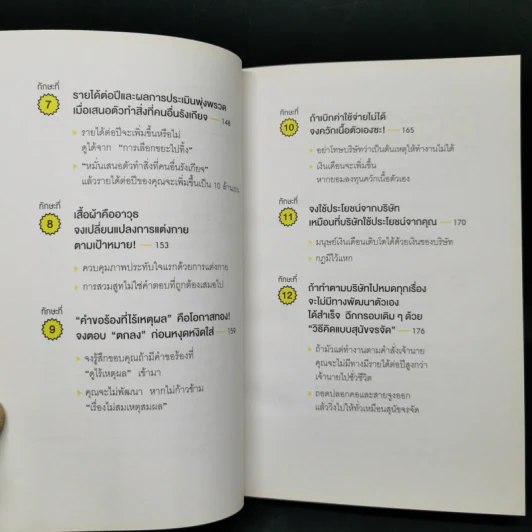 ทักษะที่
7
รายได้ต่อปีและผลการประเมินพุ่งพรวด
เมื่อเสนอตัวทำสิ่งที่คนอื่นรังเกียจ — 148
รายได้ต่อปีจะเพิ่มขึ้นหรือไม่
ดูได้จาก “การเลือกขยะไปทิ้ง”
“หมั่นเสนอตัวทำสิ่งที่คนอื่นรังเกียจ”
แล้วรายได้ต่อปีของคุณจะเพิ่มขึ้นเป็น 10 ล้าน
ทักษะที่
8
เสื้อผ้าคืออาวุธ
จงเปลี่ยนแปลงการแต่งกาย
ตามเป้าหมาย! — 153
ควบคุมภาพประทับใจแรกด้วยการแต่งกาย
การสวมสูทไม่ใช่คำตอบที่ถูกต้องเสมอไป
ทักษะที่
9
“คำขอร้องที่ไร้เหตุผล” คือโอกาสทอง!
จงตอบ “ตกลง” ก่อนหงุดหงิดใส่ — 159
จงรู้สึกขอบคุณถ้ามีคำขอร้องที่
“ดูไร้เหตุผล” เข้ามา
คุณจะไม่พัฒนา หากไม่ก้าวข้าม
“เรื่องไม่สมเหตุสมผล”
ทักษะที่
10
ถ้าเบิกค่าใช้จ่ายไม่ได้
จงควักเนื้อตัวเองซะ! — 165
อย่าโทษบริษัทว่าเป็นต้นเหตุให้ทำงานไม่ได้
เงินเดือนจะเพิ่มขึ้น
หากยอมลงทุนควักเนื้อตัวเอง
ทักษะที่
11
จงใช้ประโยชน์จากบริษัท
เหมือนที่บริษัทใช้ประโยชน์จากคุณ — 170
มนุษย์เงินเดือนเติบโตได้ด้วยเงินของบริษัท
กฎมีไว้แหก
ทักษะที่
12
ถ้าทำตามบริษัทไปหมดทุกเรื่อง
จะไม่มีทางพัฒนาตัวเอง
ได้สำเร็จ ฉีกกรอบเดิม ๆ ด้วย
“วิธีคิดแบบสุนัขจรจัด” — 176
ถ้ามัวแต่ทำงานตามคำสั่งเจ้านาย
คุณจะไม่มีทางมีรายได้ต่อปีสูงกว่า
เจ้านายไปชั่วชีวิต
ถอดปลอกคอและสายจูงออก
แล้ววิ่งไปให้ทั่วเหมือนสุนัขจรจัด